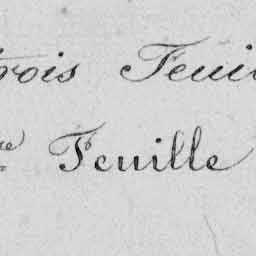 trois Feui
re Feuille